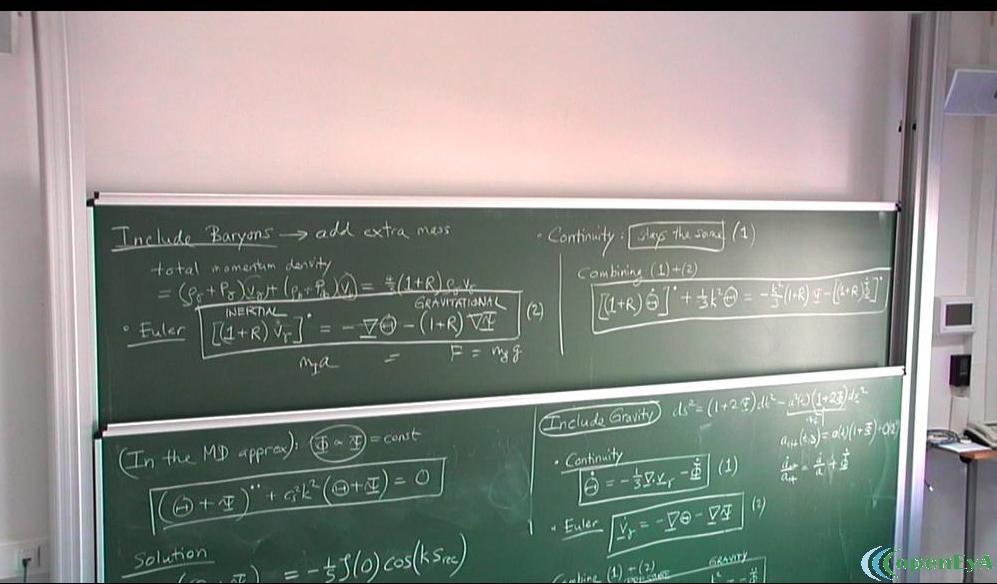 Include Baryons → add extra mass
total momentum density
= (ρ_γ + P_γ) v_γ + (ρ_b + P_b) v_b = 4/3 (1+R) ρ_γ v_γ
INERTIAL GRAVITATIONAL
• Euler [(1+R) v_γ]˙ = -∇Θ - (1+R) ∇Ψ (2)
m_I a = F = m_g g
• Continuity : stays the same (1)
Combining (1)+(2)
[(1+R) Θ̇]˙ + 1/3 k² Θ = -k²/3 (1+R) Ψ - [(1+R) Φ̇]˙
(In the MD approx): Φ ≈ Ψ = const
(Θ + Ψ)¨ + c_s² k² (Θ + Ψ) = 0
Solution
= -1/5 ζ(0) cos(k s_rec)
Include Gravity ds² = (1+2Ψ)dt² - a²(t)(1+2Φ)dx²
• Continuity
Θ̇ = -1/3 ∇·v_γ - Φ̇ (1)
• Euler v̇_γ = -∇Θ - ∇Ψ (2)
Combine (1) + (2)
GRAVITY
openEyA